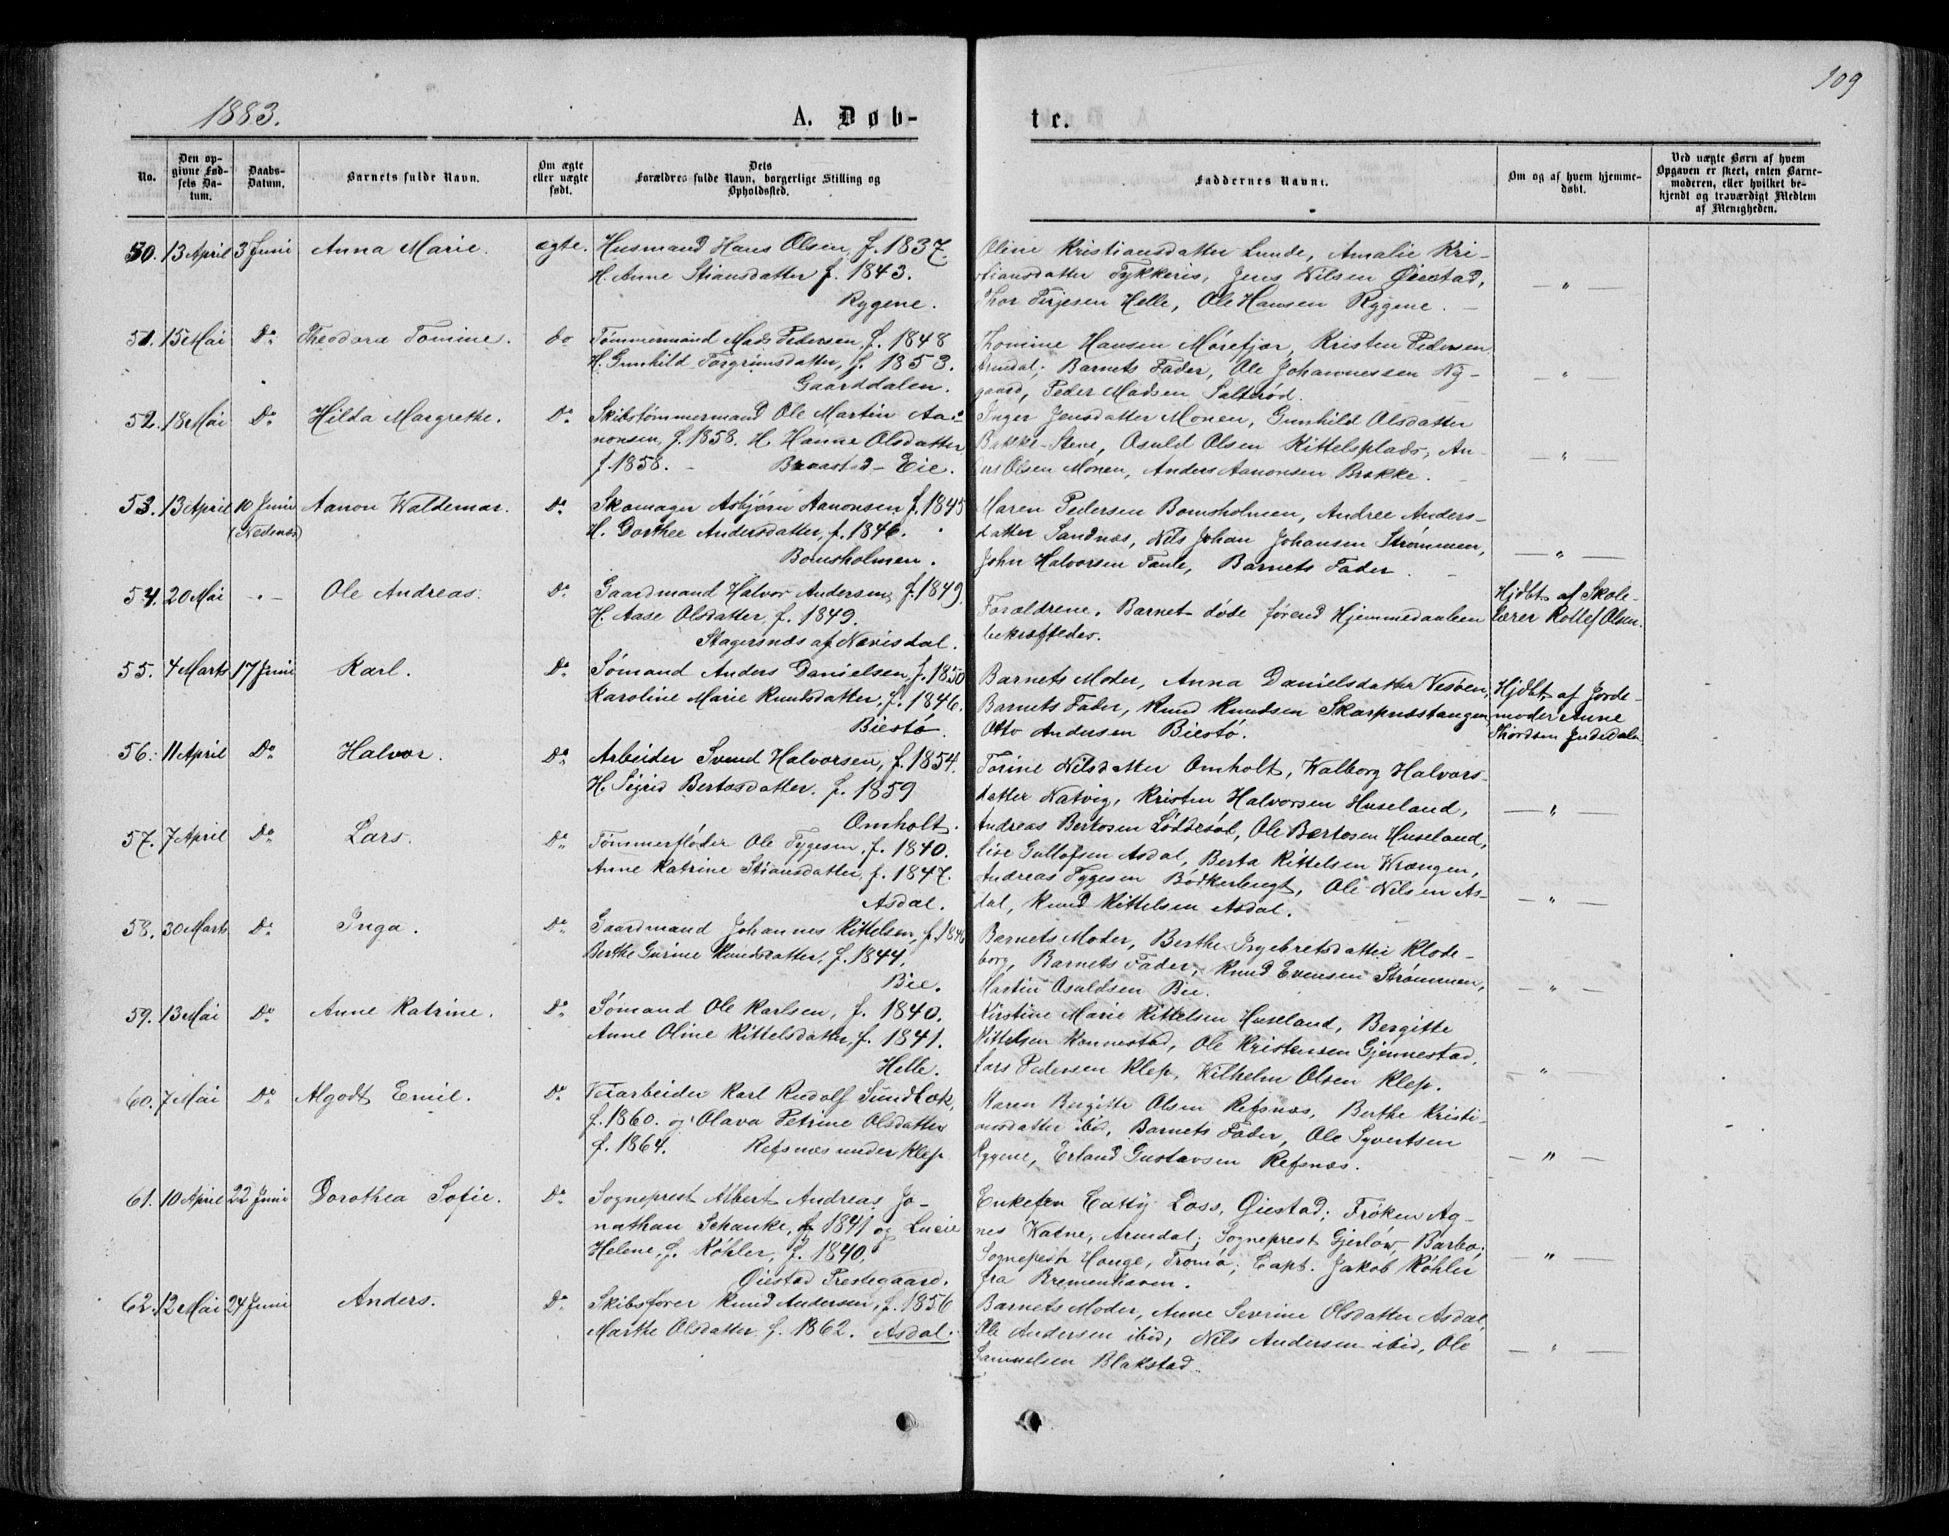 109
1883.
A. Døb-
te.
No.
Den opgivne Fødsels Datum.
Daabs-Datum.
Barnets fulde Navn.
Om ægte eller uægte født.
Dets Forældres fulde Navn, borgerlige Stilling og Opholdssted.
Faddernes Navne.
Om og af hvem hjemmedøbt.
Ved uægte Børn af hvem Opgaven er skeet, enten Barnemoderen, eller hvilket bekjendt og troværdigt Medlem af Menigheden.
50. 13 April 3 Juni Anna Marie. ægte. Husmand Hans Olsen, f. 1837.
H. Anne Stiansdatter f. 1843.
Rygene.
Oline Kristiansdatter Lunde, Amalie Kri-
stiansdatter Tykkeris, Jens Nilsen Øiestad,
Thor Terjesen Helle, Ole Hansen Rygene. — " —
51. 15 Mai Do Theodora Tomine. do Tømmermand Mads Pedersen, f. 1848
H. Gunhild Torgrimsdatter, f. 1853.
Gaarddalen.
Thomine Hansen Mørefjær, Kristen Pedersen
Arendal; Barnets Fader, Ole Johannessen Ny-
gaard, Peder Madsen Salterød. — " —
52. 18 Mai Do Hilda Margrethe. Do Skibstømmermand Ole Martin Aa-
nonsen, f. 1858. H. Hanne Olsdatter
f. 1858. - Braastad-Eie.
Inger Jensdatter Monen, Gunhild Olsdatter
Bakke-Stene, Osuld Olsen Kittelsplads, An-
ders Olsen Monen, Anders Aanonsen Brække. — " —
53. 13 April 10 Juni (Nedenæs) Aanon Waldemar. Do Skomager Asbjørn Aanonsen f. 1845
H. Dorthee Andersdatter, f. 1846.
Bomsholmen.
Maren Pedersen Bomsholmen, Andree Anders-
datter Sandnæs, Nils Johan Johansen Strømmen,
John Halvorsen Tante, Barnets Fader. — " —
54. 20 Mai - Ole Andreas. Do Gaardmand Halvor Andersen, f. 1849.
H. Aase Olsdatter, f. 1849.
Stagersnæs af Nævisdal.
Forældrene. Barnet døde førend Hjemmedaaben
bekræftedes.
Hjdbt af Skole-
lærer Rollef Olsen.
55. 4 Marts 17 Juni Karl. Do Sømand Anders Danielsen, f. 1850
Karoline Marie Knudsdatter, f. 1846.
Biestø.
Barnets Moder, Anna Danielsdatter Vesøen,
Barnets Fader, Knud Knudsen Skarpnæstangen,
Otto Andersen Biestø.
Hjdbt. af Jorde-
moder Anne
Thordsen
56. 11 April Do Halvor. Do Arbeider Svend Halvorsen, f. 1854.
H. Sigrid Bertosdatter. f. 1859
Omholt.
Torine Nilsdatter Omholt, Walborg Halvors-
datter Natvig, Kristen Halvorsen Huseland,
Andreas Bertosen Løddesøl, Ole Bertosen Huseland, — " —
57. 7 April Do Lars. Do Tømmerfløder Ole Tygesen, f. 1840.
Anne Katrine Stiansdatter, f. 1847.
Asdal.
Lise Gullofsen Asdal, Berta Kittelsen Wrængen,
Andreas Tygesen Bødkerbugt, Ole Nilsen As-
dal, Knud Kittelsen Asdal. — " —
58. 30 Marts Do Inga. Do Gaardmand Johannes Kittelsen, f. 1846
Berthe Gurine Knudsdatter, f. 1844.
Bie.
Barnets Moder, Berthe Ingebretsdatter Klode-
borg, Barnets Fader, Knud Evensen Strømmen,
Martin Osuldsen Bie. — " —
59. 13 Mai Do Anne Katrine. Do Sømand Ole Karlsen, f. 1840.
Anne Oline Kittelsdatter, f. 1841.
Helle.
Kirstine Marie Kittelsen Huseland, Bergitte
Kittelsen Rønnestad, Ole Kristensen Gjennestad,
Lars Pedersen Klep, Wilhelm Olsen Klep. — " —
60. 7 Mai Do Algodt Emil. Do Veiarbeider Karl Rudolf Sundbæk,
f. 1860. og Olava Petrine Olsdatter
f. 1864. Refsnæs under Klep
Maren Bergitte Olsen Refsnæs, Berthe Kristi-
ansdatter ibid, Barnets Fader, Ole Syvertsen
Rygene, Erland Gustavsen Refsnæs. — " —
61. 10 April 22 Juni Dorothea Sofie. Do Sogneprest Albert Andreas Jo-
nathan Schanke, f. 1841 og Lucie
Helene, f. Køhler, f. 1840.
Øiestad Prestegaard.
Enkefru Catty Loss, Øiestad; Frøken Ag-
nes Watne, Arendal; Sogneprest Gjerløw, Barbo;
Sogneprest Hauge, Tromø; Capt. Jakob Køhler
fra Bremerhaven. — " —
62. 12 Mai 24 Juni Anders. Do Skibsfører Knud Andersen, f. 1856
Marthe Olsdatter f. 1862. Asdal.
Barnets Moder, Anne Severine Olsdatter Asdal,
Ole Andersen ibid, Nils Andersen ibid, Ole
Samuelsen Blakstad. — " —